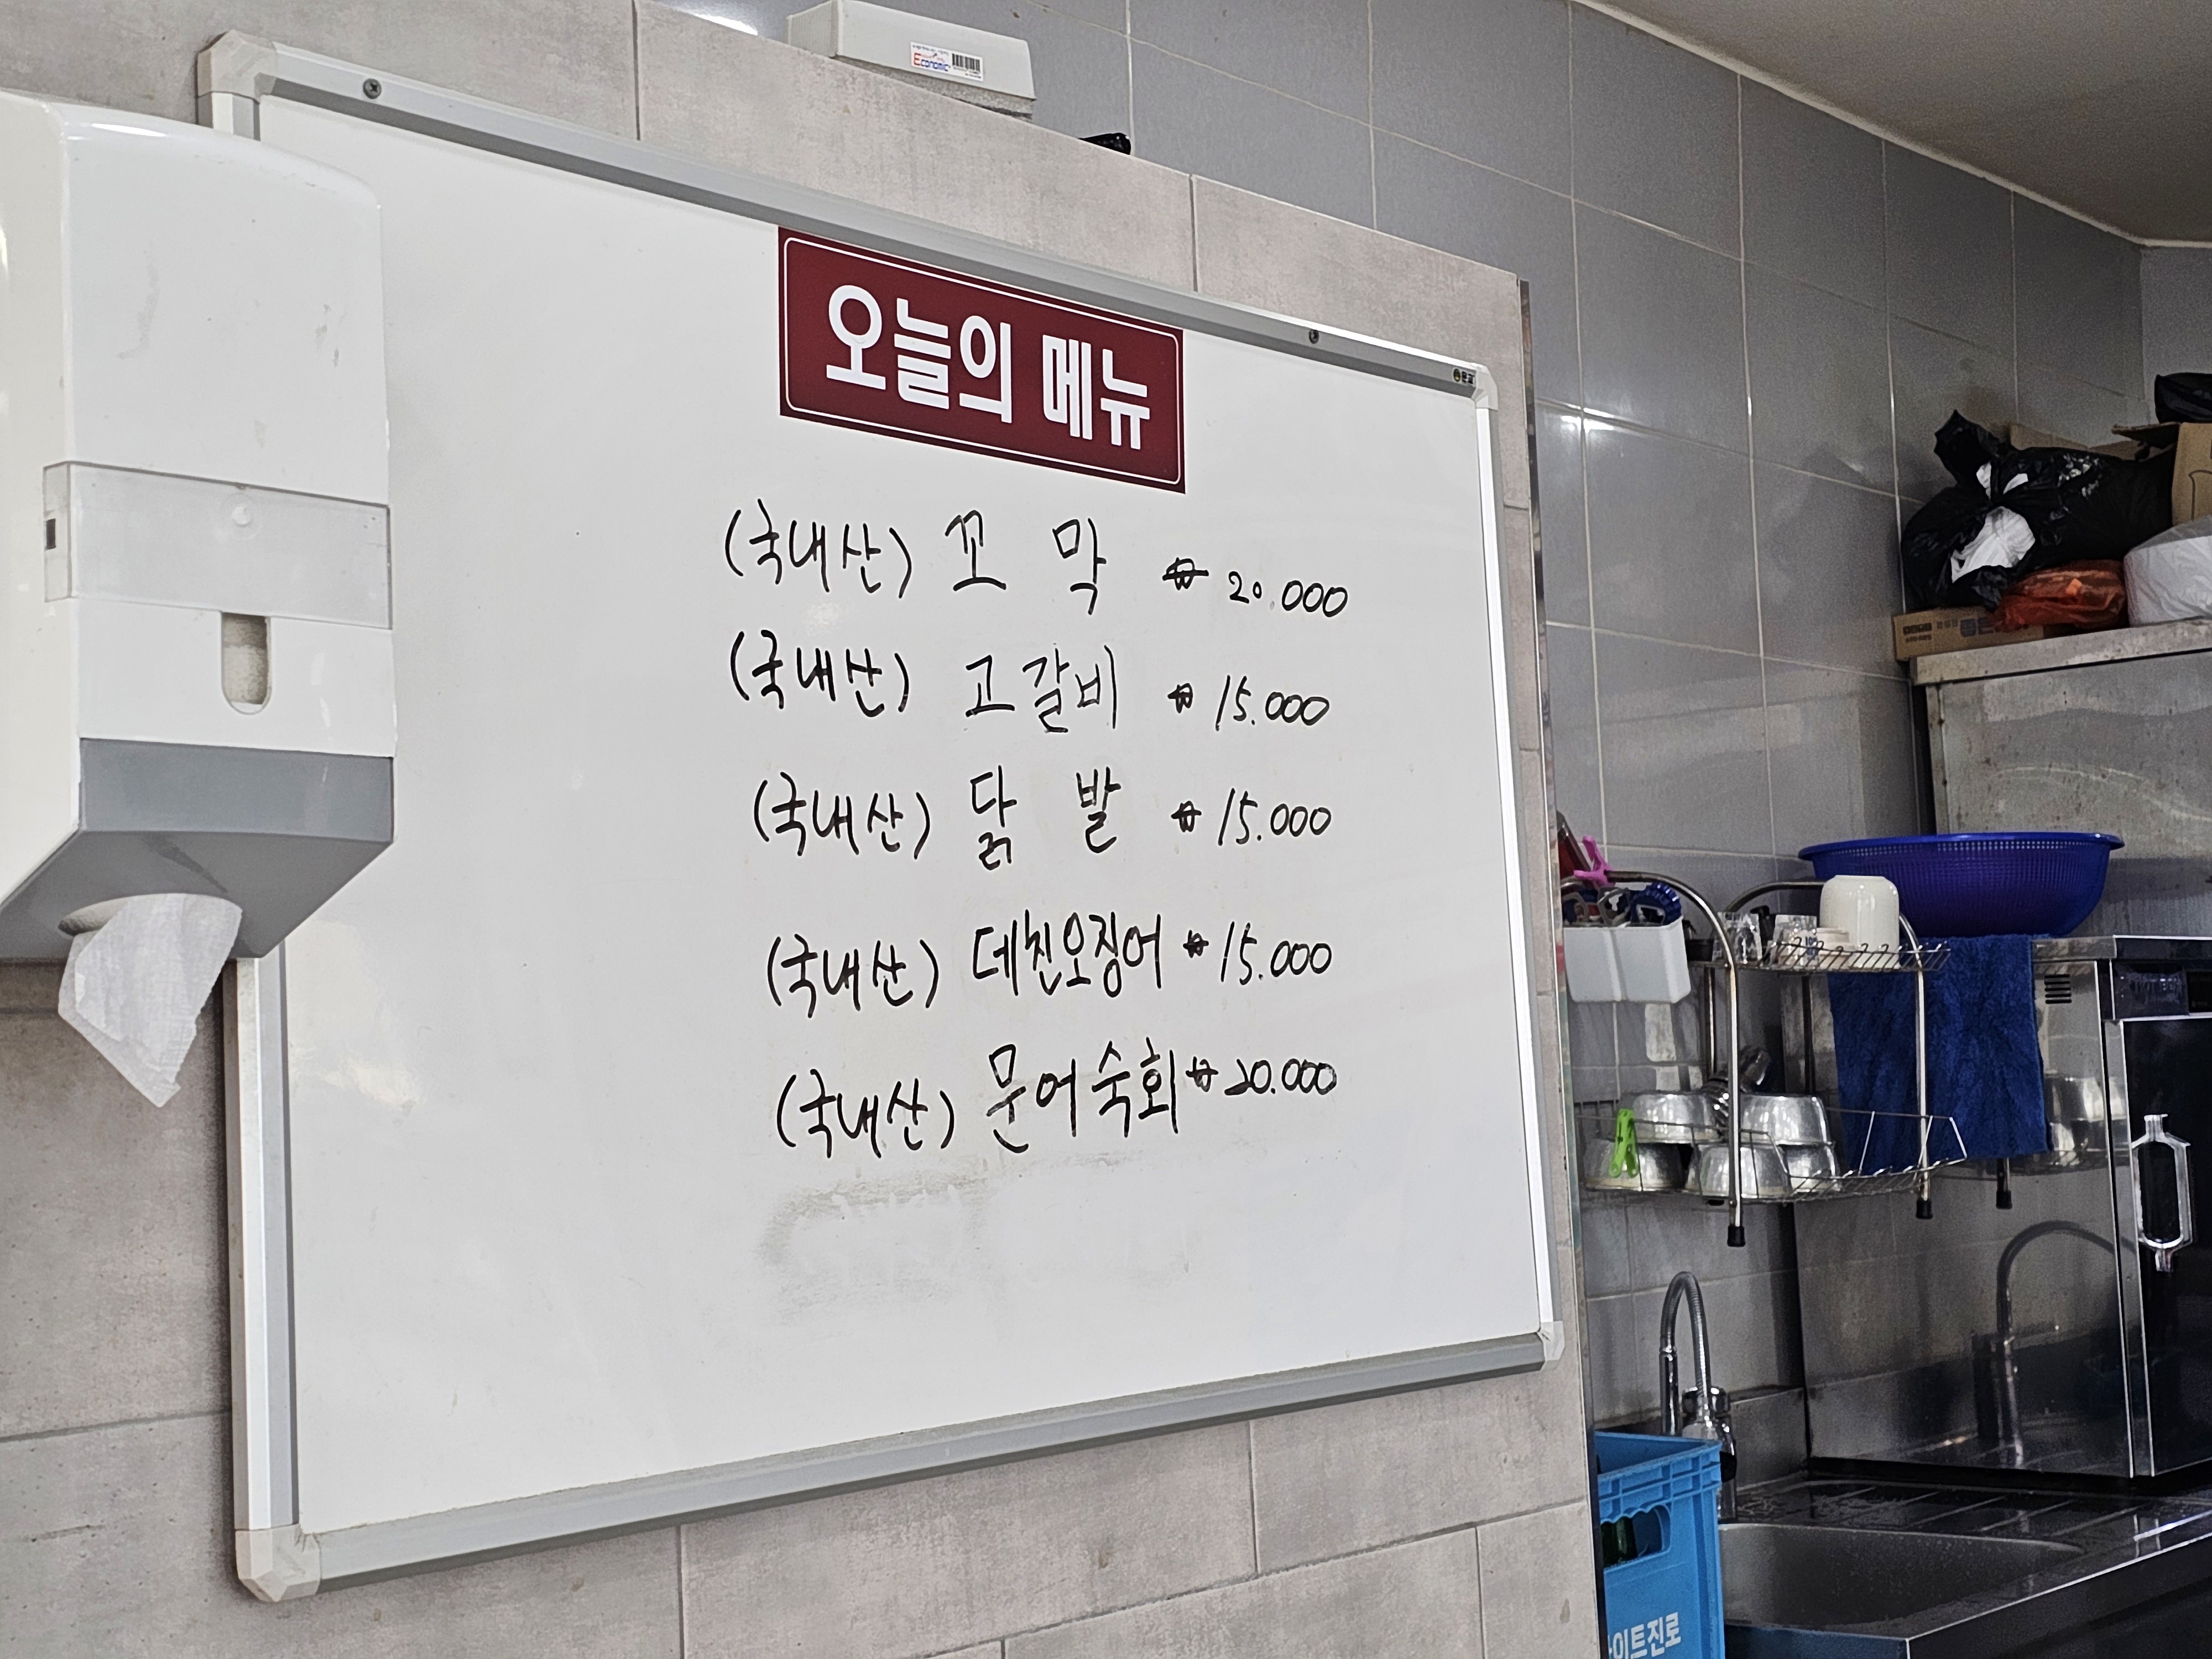 Economic
오늘의 메뉴
(국내산) 꼬 막 ₩ 20.000
(국내산) 고갈비 ₩ 15.000
(국내산) 닭 발 ₩ 15.000
(국내산) 데친오징어 ₩ 15.000
(국내산) 문어숙회 ₩ 20.000
이트진로